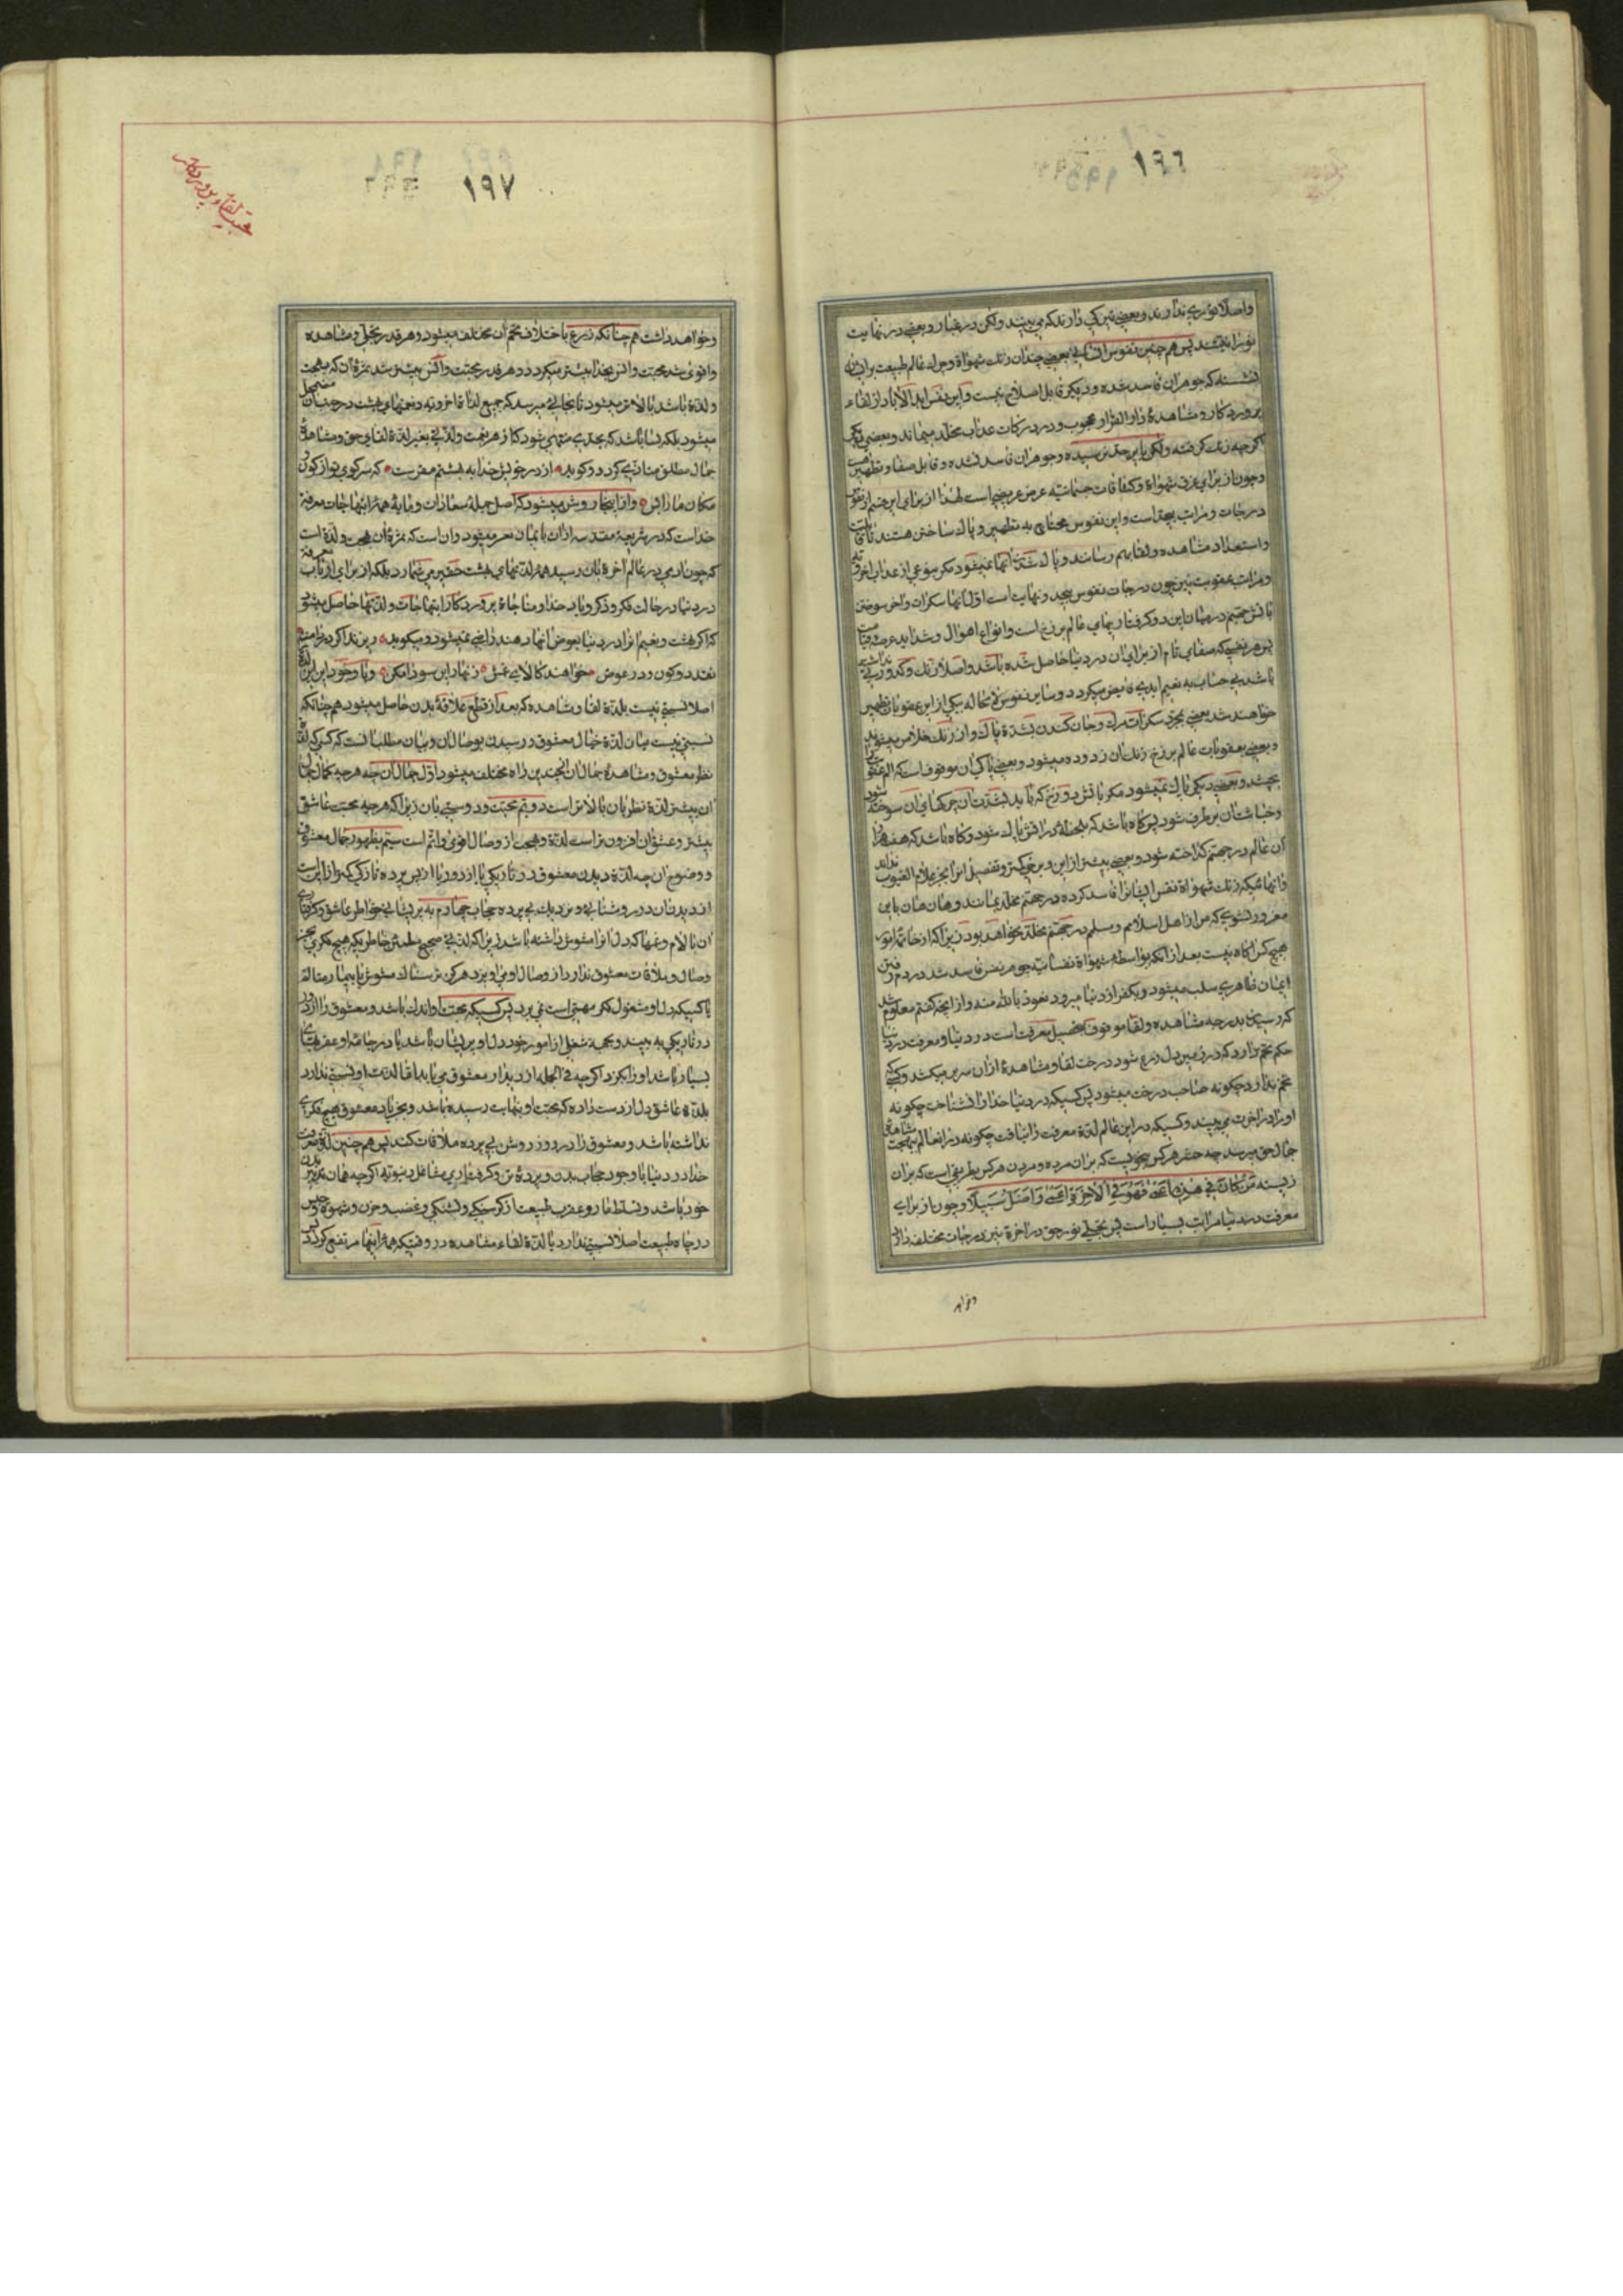 ١٩٦
واصلا نوری ندارند و بعضی تیرگی دارند که می بینند ولکن در غبار و بعضی در نهایت
نورانیتند پس هم چنین نفوس انسانی بعضی چندان زنك شهواة و چرك عالم طبیعت بر ایشان
نشسته که جوهر ان فاسد شده و دیگر قابل اصلاح نیست و این نفس ابد الآباد از لقاء
پرورد کار و مشاهدهٔ دار القرار محجوب و در درکات عذاب مخلد میماند و بعضی دیگر
اگر چه زنك گرفته ولکن باین حد نرسیده و جوهر ان فاسد نشده و قابل صفا و تطهیر هست
و چون از برای غرق شهواة و کثافات جسمانیه عرض عریضی است لهذا از برای این قسم از نفوس
درجات و مراتب بیحد است و این نفوس محتاج به تطهیر و پاك ساختن هستند تا قابلیت
و استعداد مشاهده و لقا بهم رسانند و پاك شدن انها نمیشود مکر بنوعی از عذاب اخرویه
و مراتب عقوبت نیز چون درجات نفوس بیحد و نهایت است اول انها سکرات و اخر سوختن
باتش جهنم در میان این دو گرفتاریهای عالم برزخ است و انواع اهوال و شداید عرصه قیامت
پس هر نفسی که صفای تام از برای ان در دنیا حاصل شده باشد و اصلا زنك و کدورتی نداشته
باشد بی حساب به نعیم ابدی فایض میکردد و سایر نفوس لا محاله بیکی از این عقوبات تطهیر
خواهند شد بعضی بمجرد سکرات مرك و جان کندن بشدة پاك و از زنك خلاص میشوند
و بعضی بعقوبات عالم برزخ زنك ان زدوده میشود و بعضی پاکی ان موقوف است که الم عقوبت
بچشد و بعضی دیگر پاك نمیشود مکر باتش دوزخ که باید بشدت ان چرکهای ان سوخته شود
و خباثت ان بر طرف شود پس کاه باشد که بلحظهٔ در اتش پاك شود و کاه باشد که هفت هزار
ان عالم در جهنم کداخته شود و بعضی بیشتر از این و برخی کمتر و تفصیل انرا بجز علام الغیوب نداند
و انهائیکه زنك شهواة نفس ایشانرا فاسد کرده در جهنم مخلد بمانند و هان هان باین
مغرور نشوی که من از اهل اسلامم و مسلم در جهنم مخلد نخواهد بود زیرا که از خاتمهٔ امور
هیچ کس اکاه نیست بعد از انکه بواسطهٔ شهواة نفسانیه جوهر نفس فاسد شد در دم رفتن
ایمان ظاهری سلب میشود و بکفر از دنیا میرود نعوذ بالله منه و از انچه کفتم معلوم شد
که رسیدن بدرجه مشاهده و لقا موقوف بتحصیل معرفت است در دنیا و معرفت در دنیا
حکم تخم دارد که در زمین دل زرع شود درخت لقا و مشاهده از ان سر بر میکشد و کسی که
تخم ندارد چکونه صاحب درخت میشود پس کسیکه در دنیا خدا را نشناخت چکونه
او را در اخرت می بیند و کسیکه در این عالم لذة معرفت را نیافت چکونه در انعالم ببهجت مشاهدهٔ
جمال حق میرسد چه حشر هر کس بنحویست که بر ان مرده و مردن هر کس بطریقی است که بر ان
زیسته مَنْ كانَ في هذِهِ اَعْمی فَهُوَ فِي الْاخِرَةِ اَعْمی وَ اَضَلُّ سَبيلاً و چون از برای
معرفت در دنیا مراتب بسیار است پس تجلی نور حق در اخرة نیز درجات مختلفه دارد
و خواهد
١٩٧
و خواهد داشت هم چنانکه زرع باختلاف تخم ان مختلف میشود و هر قدر تجلی و مشاهده
و اقوی شد محبت و انس بخدا بیشتر میکردد و هر قدر محبت و انس بیشتر شد ثمرهٔ ان که بهجت
و لذة باشد بالاتر میشود تا بجائی میرسد که جمیع لذات اخرویه و نعمتهای بهشت در جنب ان مضمحل
میشود بلکه بسا باشد که بحدی منتهی شود که از هر نعمت ولذتی بغیر لذة لقای حق و مشاهدهٔ
جمال مطلق متاذی کردد و کوید از در خویش خدایا به بهشتم مفرست که سر کوی تو از کون و
مکان ما را بس و از اینجا روشن میشود که اصل جملهٔ سعادات و مایهٔ همهٔ ابتهاجات معرفة
خداست که در شریعهٔ مقدسه از ان بایمان تعبیر میشود و ان است که ثمرهٔ ان بهجت و لذة است
که چون ادمی در عالم اخرة بان رسید همهٔ لذتهای بهشت حقیر می شمارد بلکه از برای ارباب معرفة
در دنیا در حالت فکر و ذکر و یاد خدا و مناجاة پرورد کار ابتهاجات و لذتها حاصل میشود
که اگر بهشت و نعیم انرا در دنیا بعوض انها دهند راضی نمیشود و میکوید
نقد دو کون در عوض خواهند کالای غمش زنهار این سودا مکن و با وجود این این لذة
اصلا نسبتی نیست بلذة لقا و مشاهده که بعد از قطع علاقهٔ بدن حاصل میشود هم چنانکه
نسبتی نیست میان لذة خیال معشوق و رسیدن بوصال ان و بیان مطلب انست که کسی که لذة
نظر معشوق و مشاهدهٔ جمال ان بچندین راه مختلف میشود اول جمال ان چه هر چه کمال جمال
ان بیشتر لذة نظر بان بالاتر است دویم محبت و دوستی بان زیرا که هر چه محبت عاشق
بیشتر و عشق ان افزون تر است لذة و بهجت از وصال اقوی و اتم است سیم بظهور جمال معشوق
و وضوح ان چه لذة دیدن معشوق در تاریکی یا از دور یا از پس پرده نازکی کمتر از ان است
از دیدن ان در روشنائی و نزدیك بی پرده حجاب چهارم به پریشانی خواطر عاشق و گرفتاری
ان بالام و غمها که دل انرا مشوش داشته باشد زیرا که لذتی صحیح مطمئن خاطریکه هیچ فکری بجز
وصال و ملاقات معشوق ندارد از وصال او می برد هرکز ترسناك مشوش یا بیمار متالم
یا کسیکه دل او مشغول فکر مهمی است نمی برد پس کسیکه محبت او اندك باشد و معشوق را از دور
در تاریکی به بیند و بجمعه شغلی از امور خود دل او پریشان باشد یا در جامهٔ او عقربهای
بسیار باشد او را بکزد اگر چه فی الجمله از دیدار معشوق می یابد اما لذت او نسبتی ندارد
بلذة عاشق دل از دست داده که محبت او بنهایت رسیده باشد و بجز یاد معشوق هیچ فکری
نداشته باشد و معشوق را در روز روشن بی پرده ملاقات کند پس هم چنین لذة معرفت
خدا در دنیا با وجود حجاب بدن و پردهٔ تن و گرفتاری مشاغل دنیویه اگر چه همان تدبیر بدن
خود باشد و تسلط مار و عقرب طبیعت از گرسنگی و تشنگی و غضب و حزن و شهوة و حبس
در چاه طبیعت اصلا نسبتی ندارد با لذة لقاء مشاهده در وقتیکه همهٔ اینها مرتفع کردد